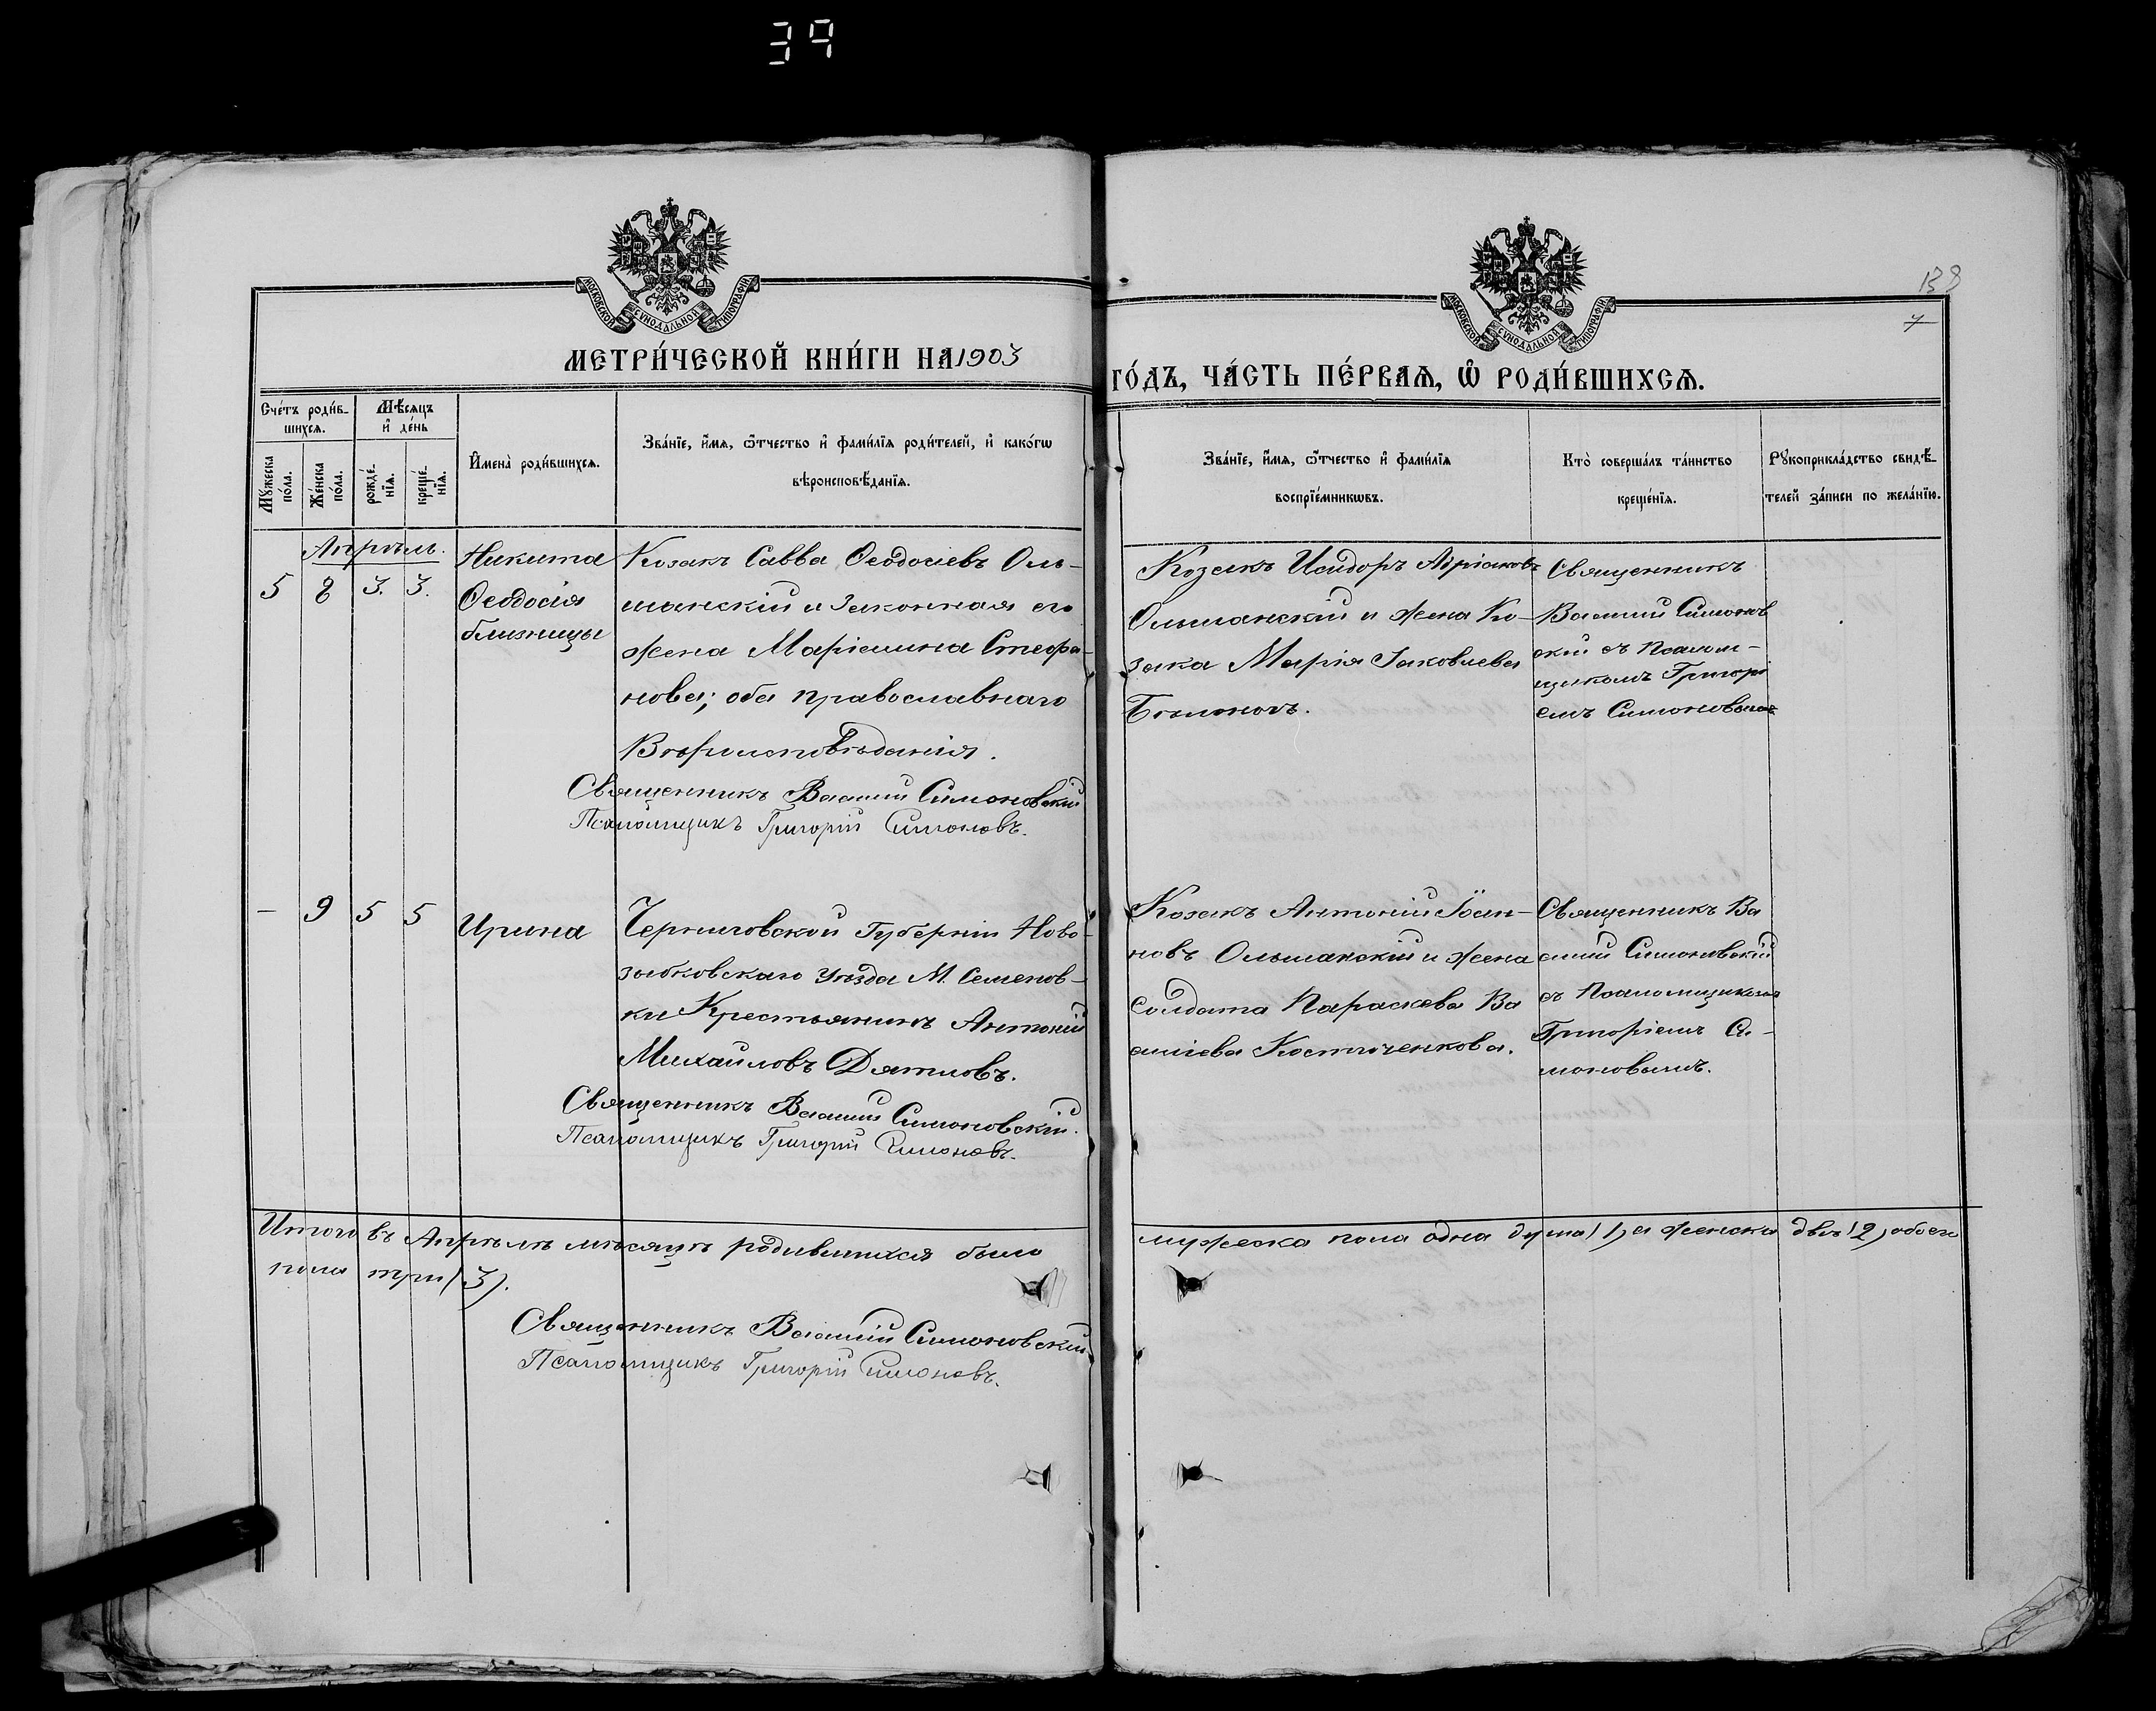 39
МОСКОВСКОЙ СѴНОДАЛЬНОЙ ТИПОГРАФІИ
МОСКОВСКОЙ СѴНОДАЛЬНОЙ ТИПОГРАФІИ
138
7
МЕТРИ́ЧЕСКОЙ КНИ́ГИ НА 1903
ГО́ДЪ, ЧА́СТЬ ПЕ́РВАѦ, Ѡ҆ РОДИ́ВШИХСѦ.
Сче́тъ роди́в-
шихсѧ.
Мѣ́сѧцъ
и҆ де́нь
Мꙋ́жеска
по́ла.
Же́нска
по́ла.
рожде́-
нїѧ.
креще́-
нїѧ.
И҆мена̀ роди́вшихсѧ.
Зва́нїе, и҆́мѧ, ѻ҆́тчество и҆ фами́лїѧ роди́телей, и҆ како́гѡ
вѣроисповѣ́данїѧ.
Зва́нїе, и҆́мѧ, ѻ҆́тчество и҆ фами́лїѧ
воспрїе́мникѡвъ.
Кто̀ соверша́лъ та́инство
креще́нїѧ.
Рꙋкоприкла́дство свидѣ́-
телей за́писи по жела́нїю.
Апрѣль.
5 8 3. 3.
Никита
Ѳеодосія
близнецы
Козакъ Савва Ѳеодосіевъ Оль-
шанскій и законная его
жена Маріамна Стефа-
нова; оба православнаго
Вѣроисповѣданія.
Священникъ Василій Симоновскій
Псаломщикъ Григорій Симоновъ.
Козакъ Исидоръ
Ольшанскій и жена Ко-
зака Марія Іаковлева
Священникъ
Василій Симонов
скій съ Псалом-
щикомъ Григорі
емъ Симоновымъ
- 9 5 5
Ирина
Черниговской Губерніи Ново-
зыбковскаго уѣзда М. Семенов-
ки Крестьянинъ Антоній
Михаиловъ Дятловъ.
Священникъ Василій Симоновскій.
Псаломщикъ Григорій Симоновъ.
Козакъ Антоній Іоан-
новъ Ольшанскій и жена
солдата Параскева Ва
силіева Костюченкова.
Священникъ Ва
силій Симоновскій
съ Псаломщикомъ
Григоріемъ Си-
моновымъ.
Итого въ Апрѣлѣ мѣсяцѣ родившихся было
мужеска пола одна душа (1) а женска двѣ (2) обоего
пола три (3).
Священникъ Василій Симоновскій
Псаломщикъ Григорій Симоновъ.